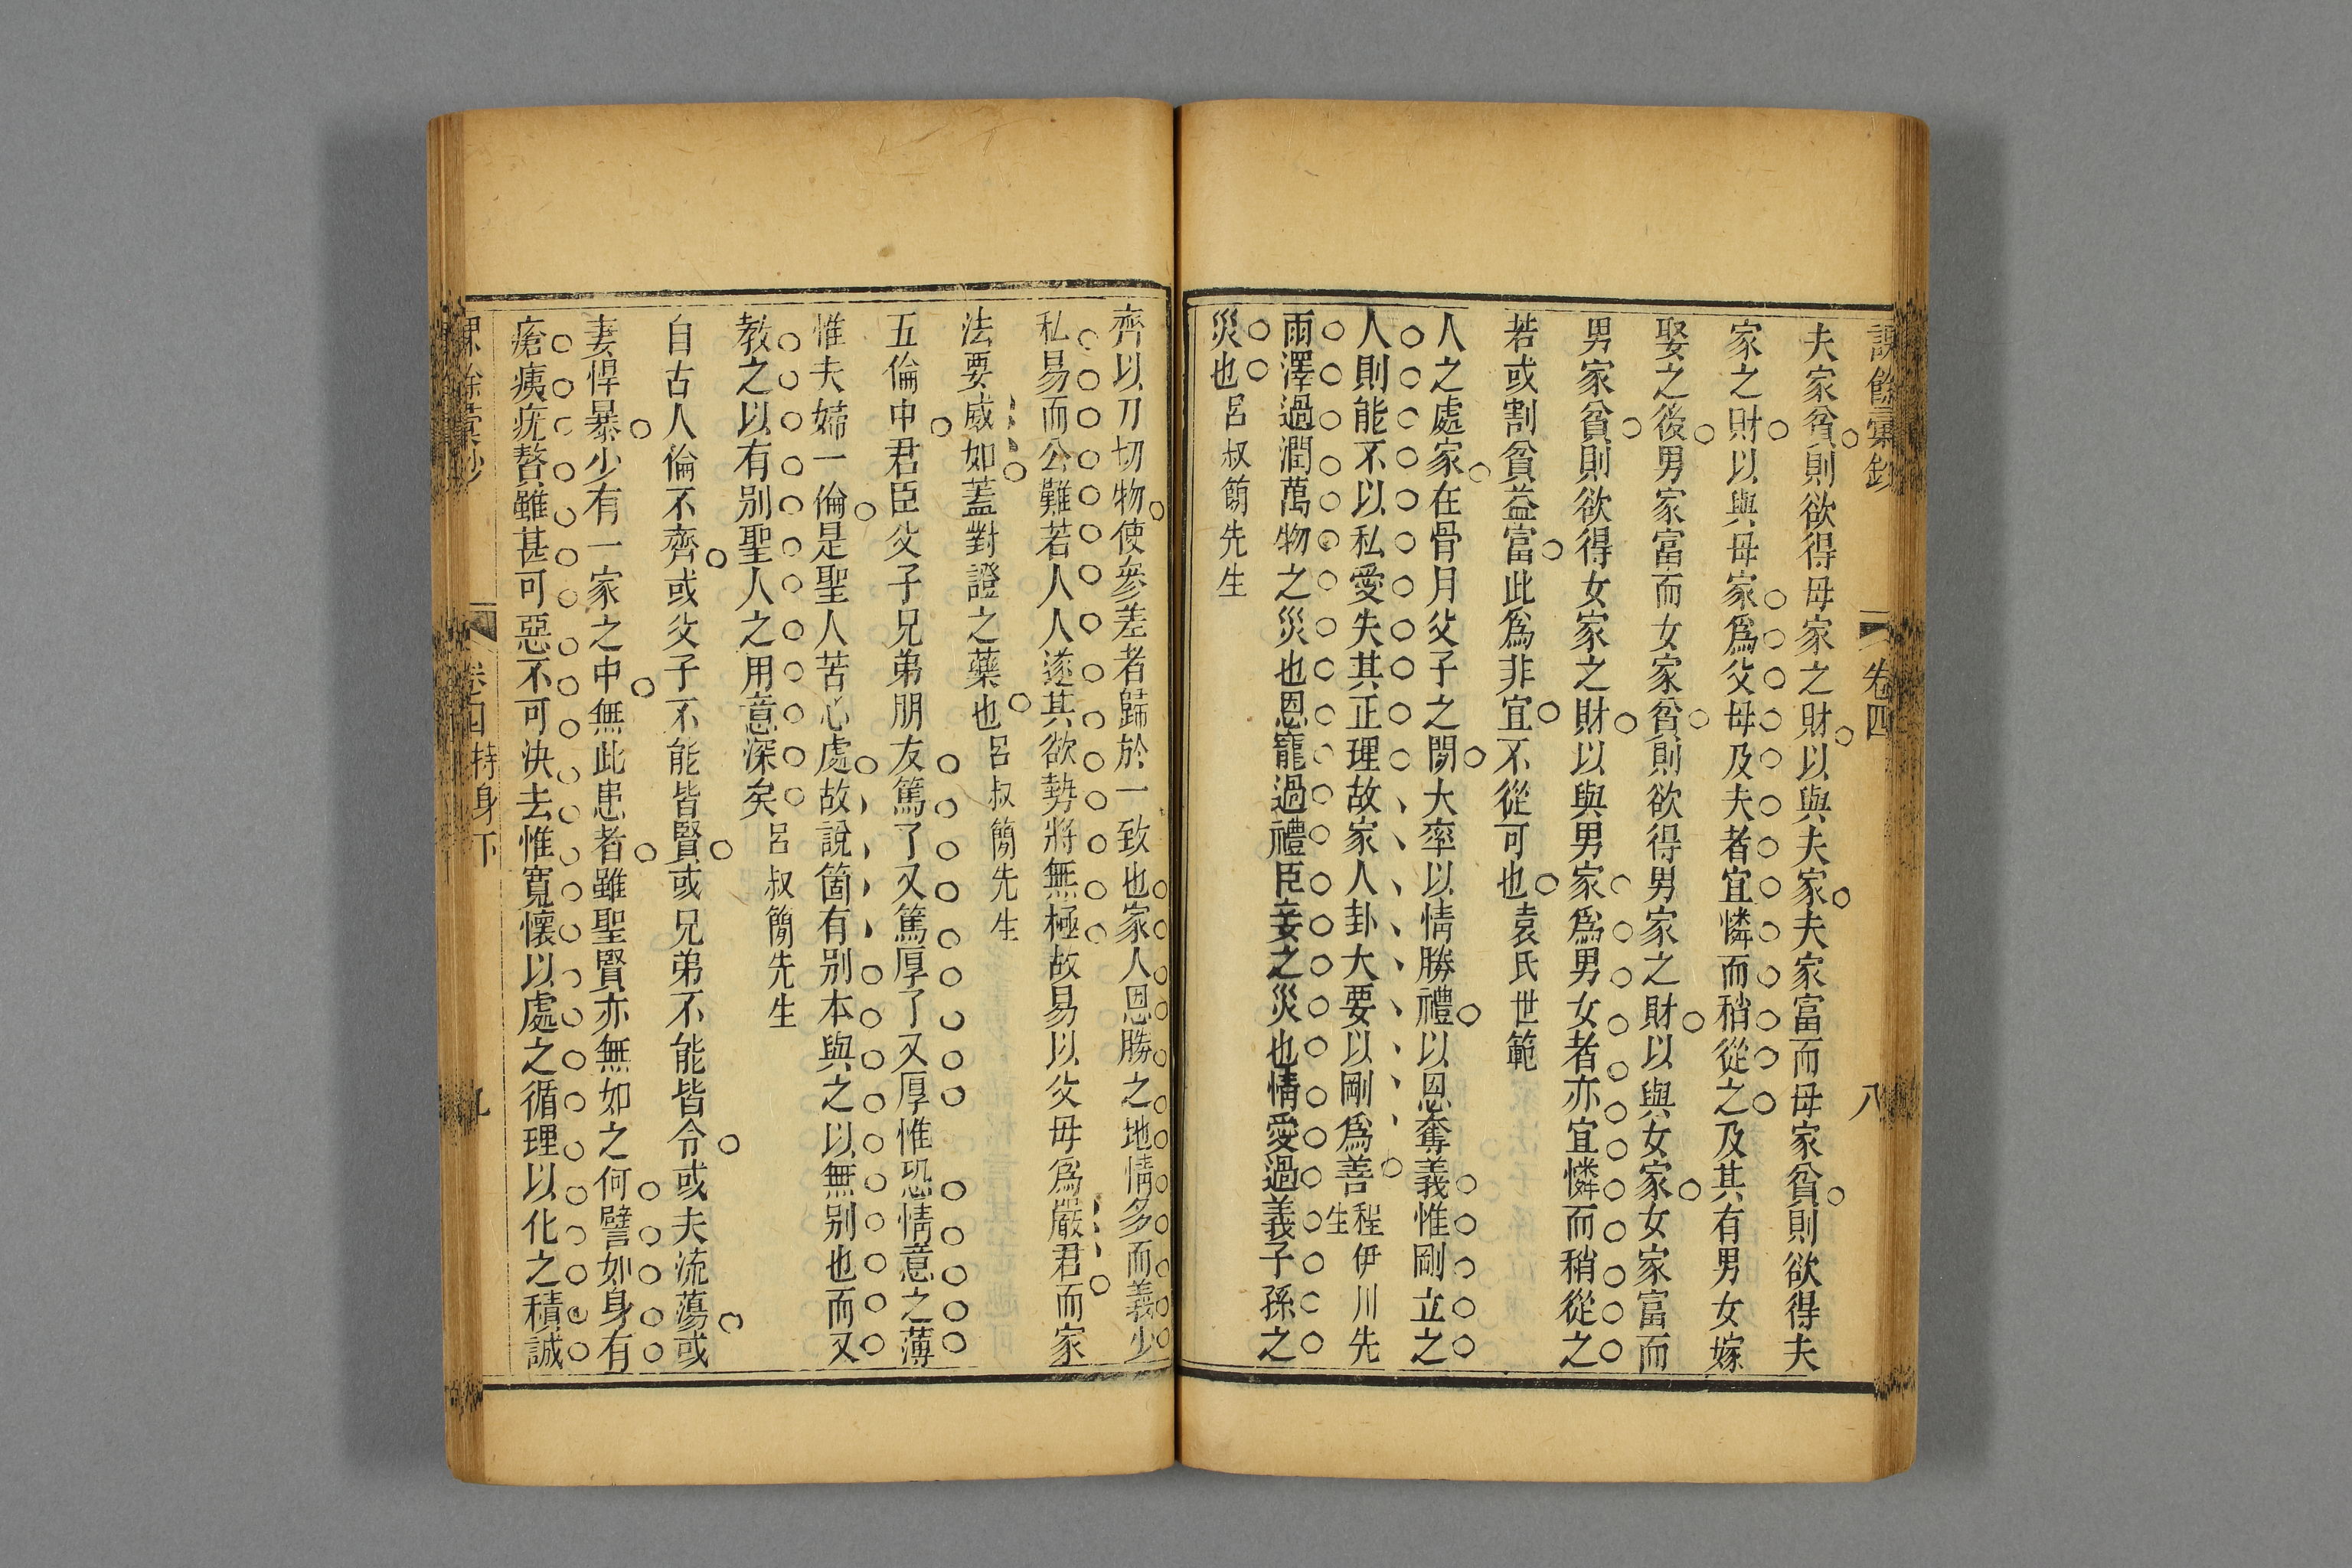 課餘彙鈔 卷四 八
夫家貧則欲得母家之財以與夫家夫家富而母家貧則欲得夫
家之財以與母家爲父母及夫者宜憐而稍從之及其有男女嫁
娶之後男家富而女家貧則欲得男家之財以與女家女家富而
男家貧則欲得女家之財以與男家爲男女者亦宜憐而稍從之
若或割貧益富此爲非宜不從可也袁氏世範
人之處家在骨月父子之閒大率以情勝禮以恩奪義惟剛立之
人則能不以私愛失其正理故家人卦大要以剛爲善程伊川先生
雨澤過潤萬物之災也恩寵過禮臣妾之災也情愛過義子孫之
災也呂叔簡先生
齊以刀切物使參差者歸於一致也家人恩勝之地情多而義少
私易而公難若人人遂其欲勢將無極故易以父母爲嚴君而家
法要威如蓋對證之藥也呂叔簡先生
五倫中君臣父子兄弟朋友篤了又篤厚了又厚惟恐情意之薄
惟夫婦一倫是聖人苦心處故說箇有别本與之以無别也而又
教之以有别聖人之用意深矣呂叔簡先生
自古人倫不齊或父子不能皆賢或兄弟不能皆令或夫流蕩或
妻悍暴少有一家之中無此患者雖聖賢亦無如之何譬如身有
瘡痍疣贅雖甚可惡不可決去惟寬懷以處之循理以化之積誠
課餘彙鈔 卷四 持身下 九